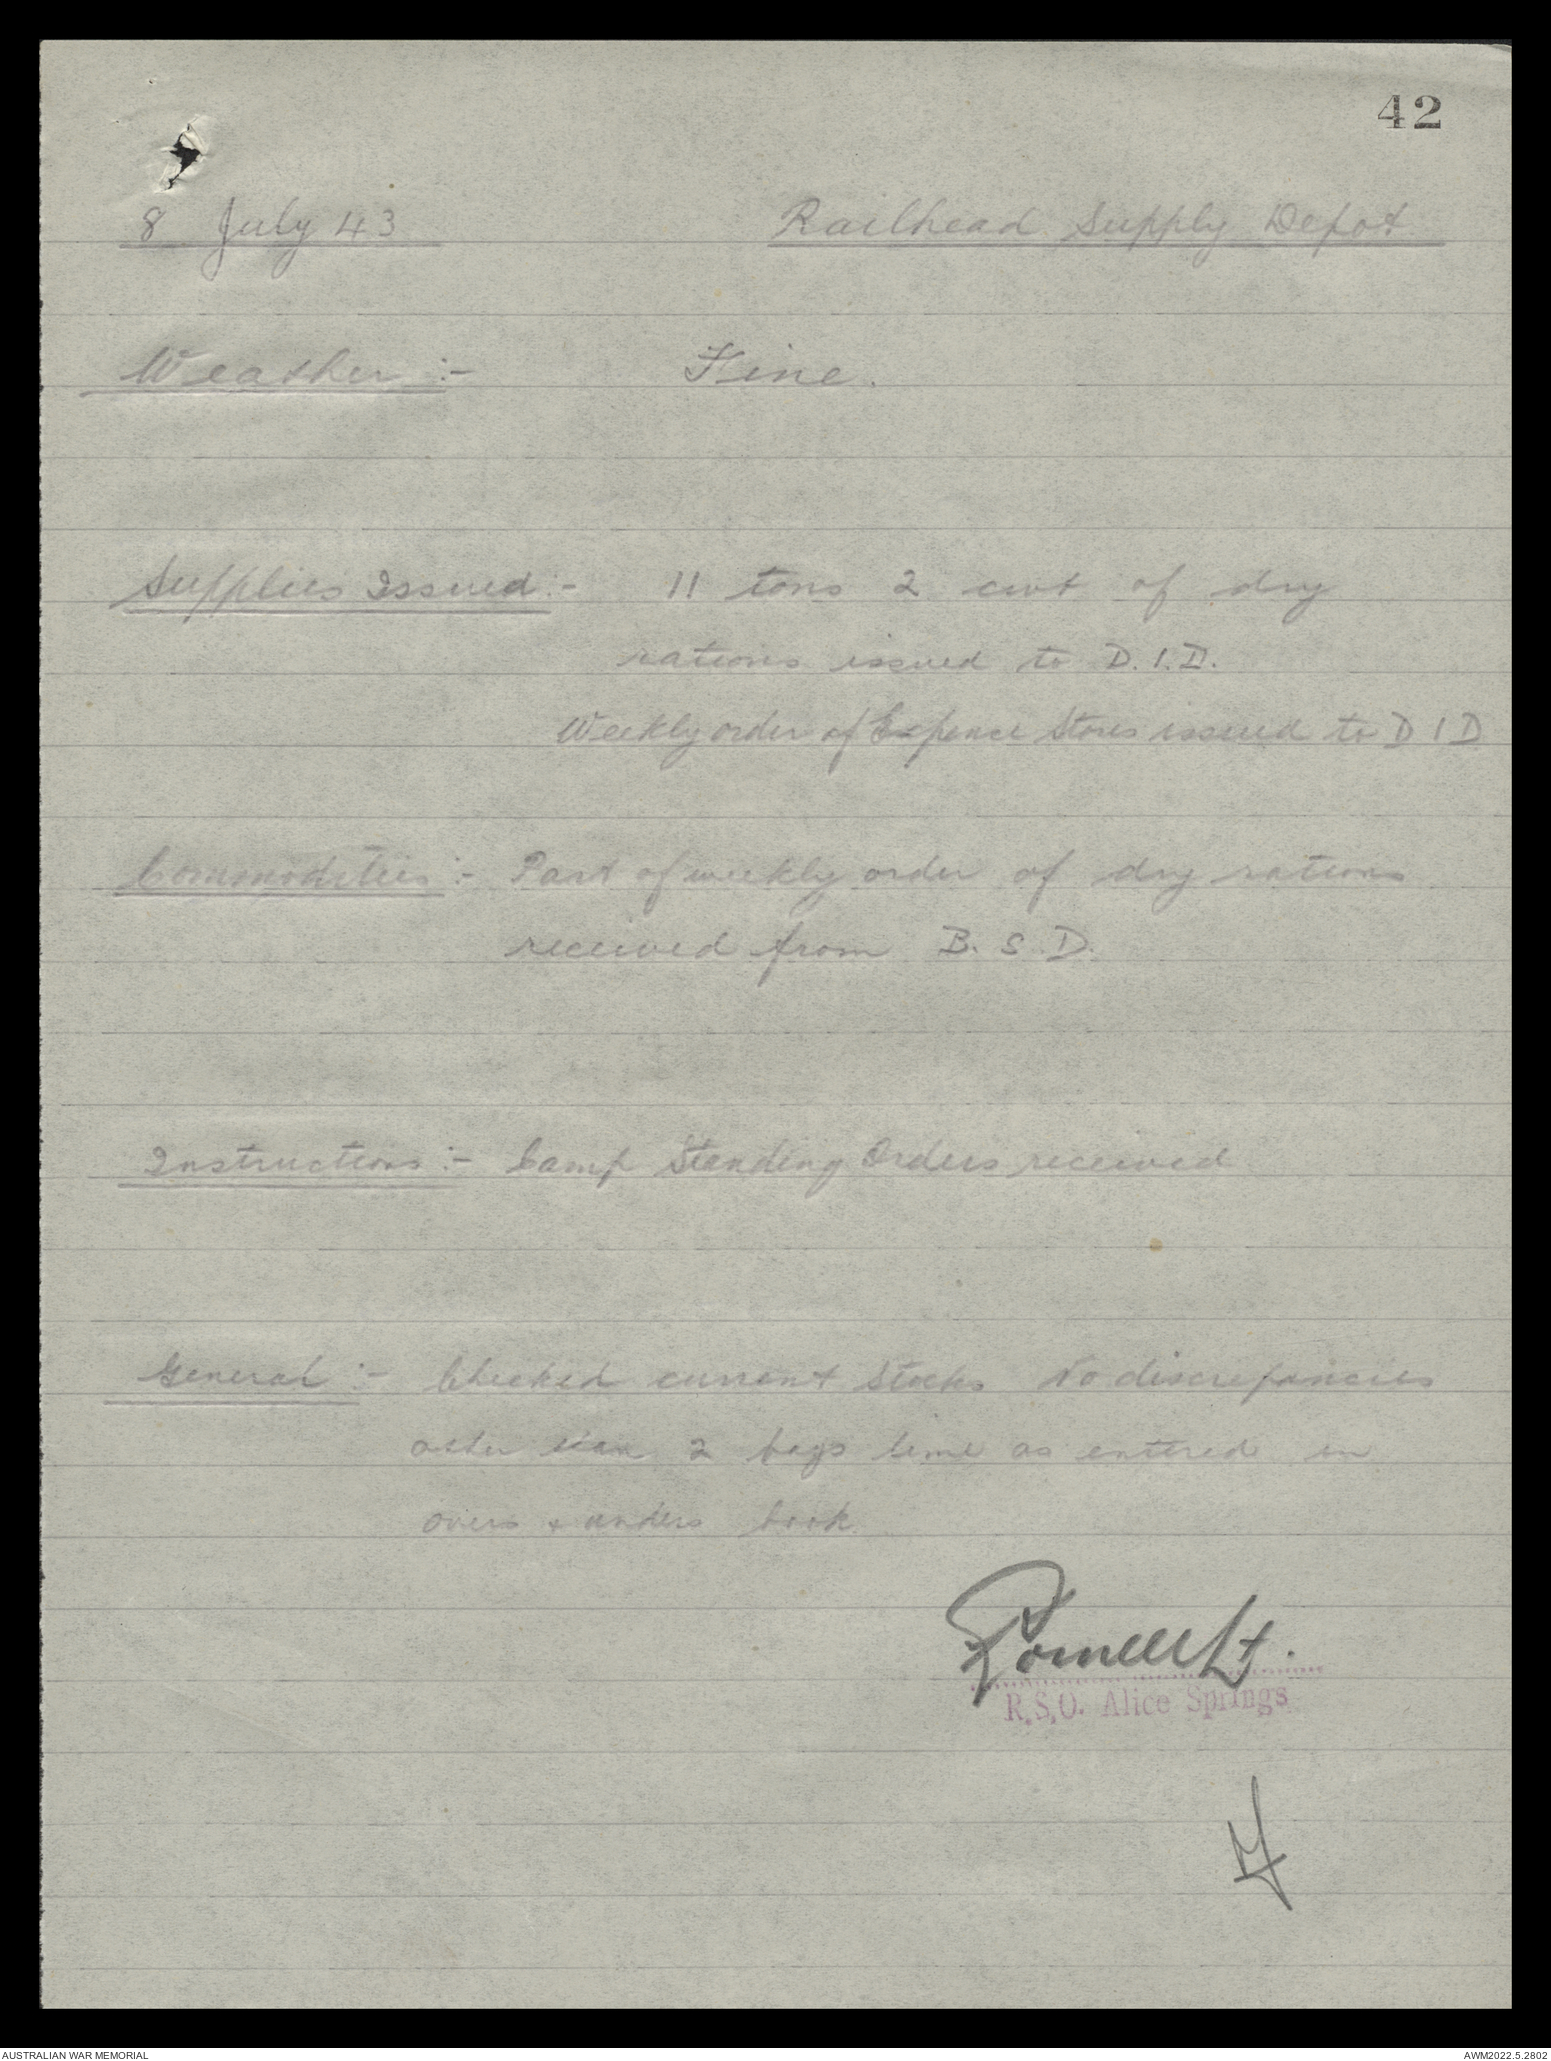 42
8 July 43 Railhead Supply Depot
Weather :- Fine.
Supplies Issued :- 11 tons 2 cwt of dry
rations issued to D.I.D.
Weekly order of Expence Stores issued to D I D
Commodities :- Part of weekly order of dry rations
received from B. S. D.
Instructions :- Camp Standing Orders received
General :- Checked current Stocks No discrepancies
other than 2 bags lime as entered in
overs + unders book
Lt.
R.S.O. Alice Springs
AUSTRALIAN WAR MEMORIAL AWM2022.5.2802